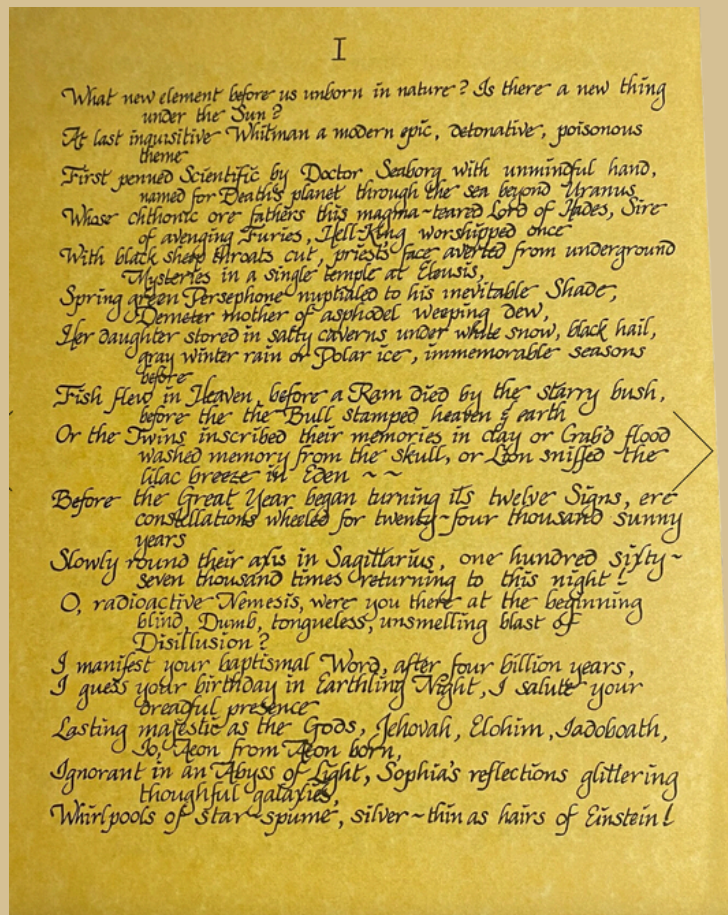 I
What new element before us unborn in nature? Is there a new thing
under the Sun?
At last inquisitive Whitman a modern epic, detonative, poisonous
theme
First penned Scientific by Doctor Seaborg with unmindful hand,
named for Death's planet through the sea beyond Uranus
Whose chthonic ore fathers this magma-teared Lord of Hades, Sire
of avenging Furies, Hell-King worshipped once
With black sheep throats cut, priest's face averted from underground
Mysteries in a single temple at Eleusis,
Spring green Persephone nuptialed to his inevitable Shade,
Demeter mother of asphodel weeping dew,
Her daughter stored in salty caverns under white snow, black hail,
gray winter rain or Polar ice, immemorable seasons
before
Fish flew in Heaven, before a Ram died by the starry bush,
before the the Bull stamped heaven & earth
Or the Twins inscribed their memories in clay or Crab'd flood
washed memory from the skull, or Lion sniffed the
lilac breeze in Eden ~ ~
Before the Great Year began turning its twelve Signs, ere
constellations wheeled for twenty-four thousand sunny
years
Slowly round their axis in Sagittarius, one hundred sixty-
seven thousand times returning to this night!
O, radioactive Nemesis, were you there at the beginning
blind, Dumb, tongueless, unsmelling blast of
Disillusion?
I manifest your baptismal Word, after four billion years,
I guess your birthday in Earthling Night, I salute your
dreadful presence
Lasting majestic as the Gods, Jehovah, Elohim, Iadoboath,
Io, Aeon from Aeon born,
Ignorant in an Abyss of Light, Sophia's reflections glittering
thoughful galaxies,
Whirlpools of star-spume, silver-thin as hairs of Einstein!